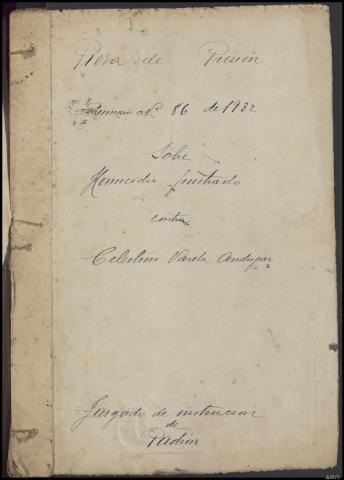 Pieza de Prisión
Sumario Nº 86 de 1932
Sobre
Homicidio frustrado
contra
Celestino Varela Andujar
Juzgado de instrucion
de
Padrón